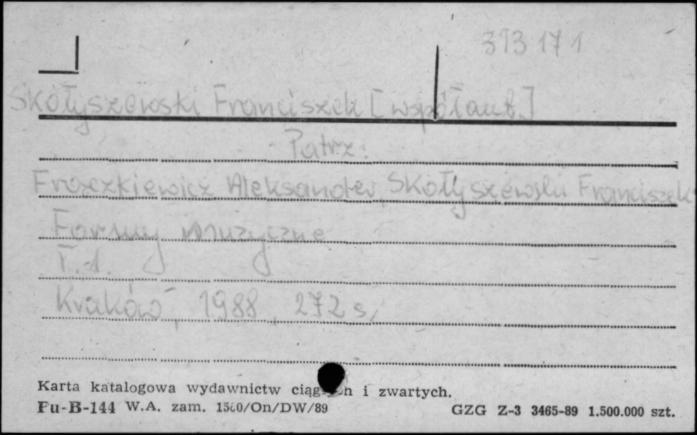 313171
Skołyszewski Franciszek [współaut.]
Patrz:
Frączkiewicz Aleksander, Skołyszewski Franciszek
Formy muzyczne
T.1.
Kraków, 1988, 272 s,
Karta katalogowa wydawnictw ciągłych i zwartych.
Fu-B-144 W.A. zam. 1560/On/DW/89 GZG Z-3 3465-89 1.500.000 szt.